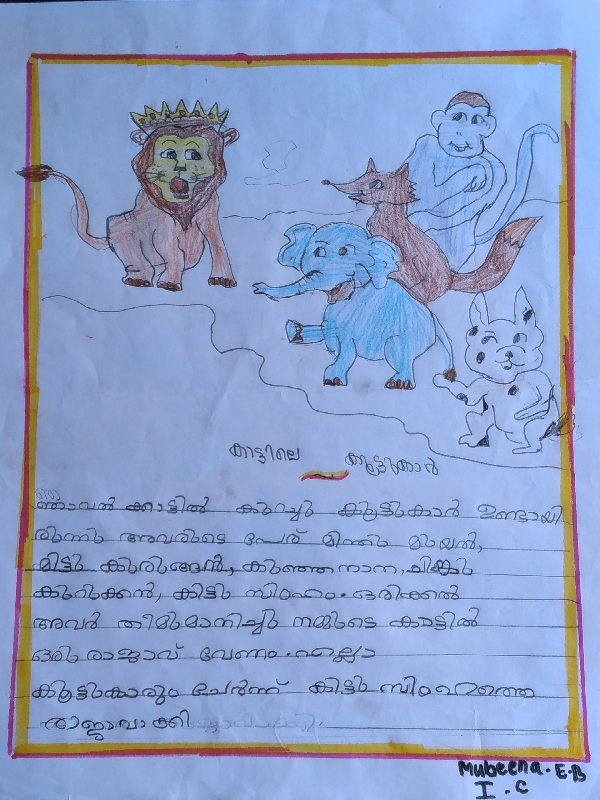 കാട്ടിലെ കൂട്ടുകാർ
ഒരു
ഞാവൽ ക്കാട്ടിൽ കുറച്ചു കൂട്ടുകാർ ഉണ്ടായി
രുന്നു അവരുടെ പേര് മിന്നു മുയൽ,
മിട്ടു കുരുങ്ങൻ, കുഞ്ഞനാന, ചിങ്കു
കുറുക്കൻ, കിട്ടു സിംഹം. ഒരിക്കൽ
അവർ തീരുമാനിച്ചു നമ്മുടെ കാട്ടിൽ
ഒരു രാജാവ് വേണം. എല്ലാ
കൂട്ടുകാരും ചേർന്ന് കിട്ടു സിംഹത്തെ
രാജാവാക്കി
Mubeena. E.B
I. C